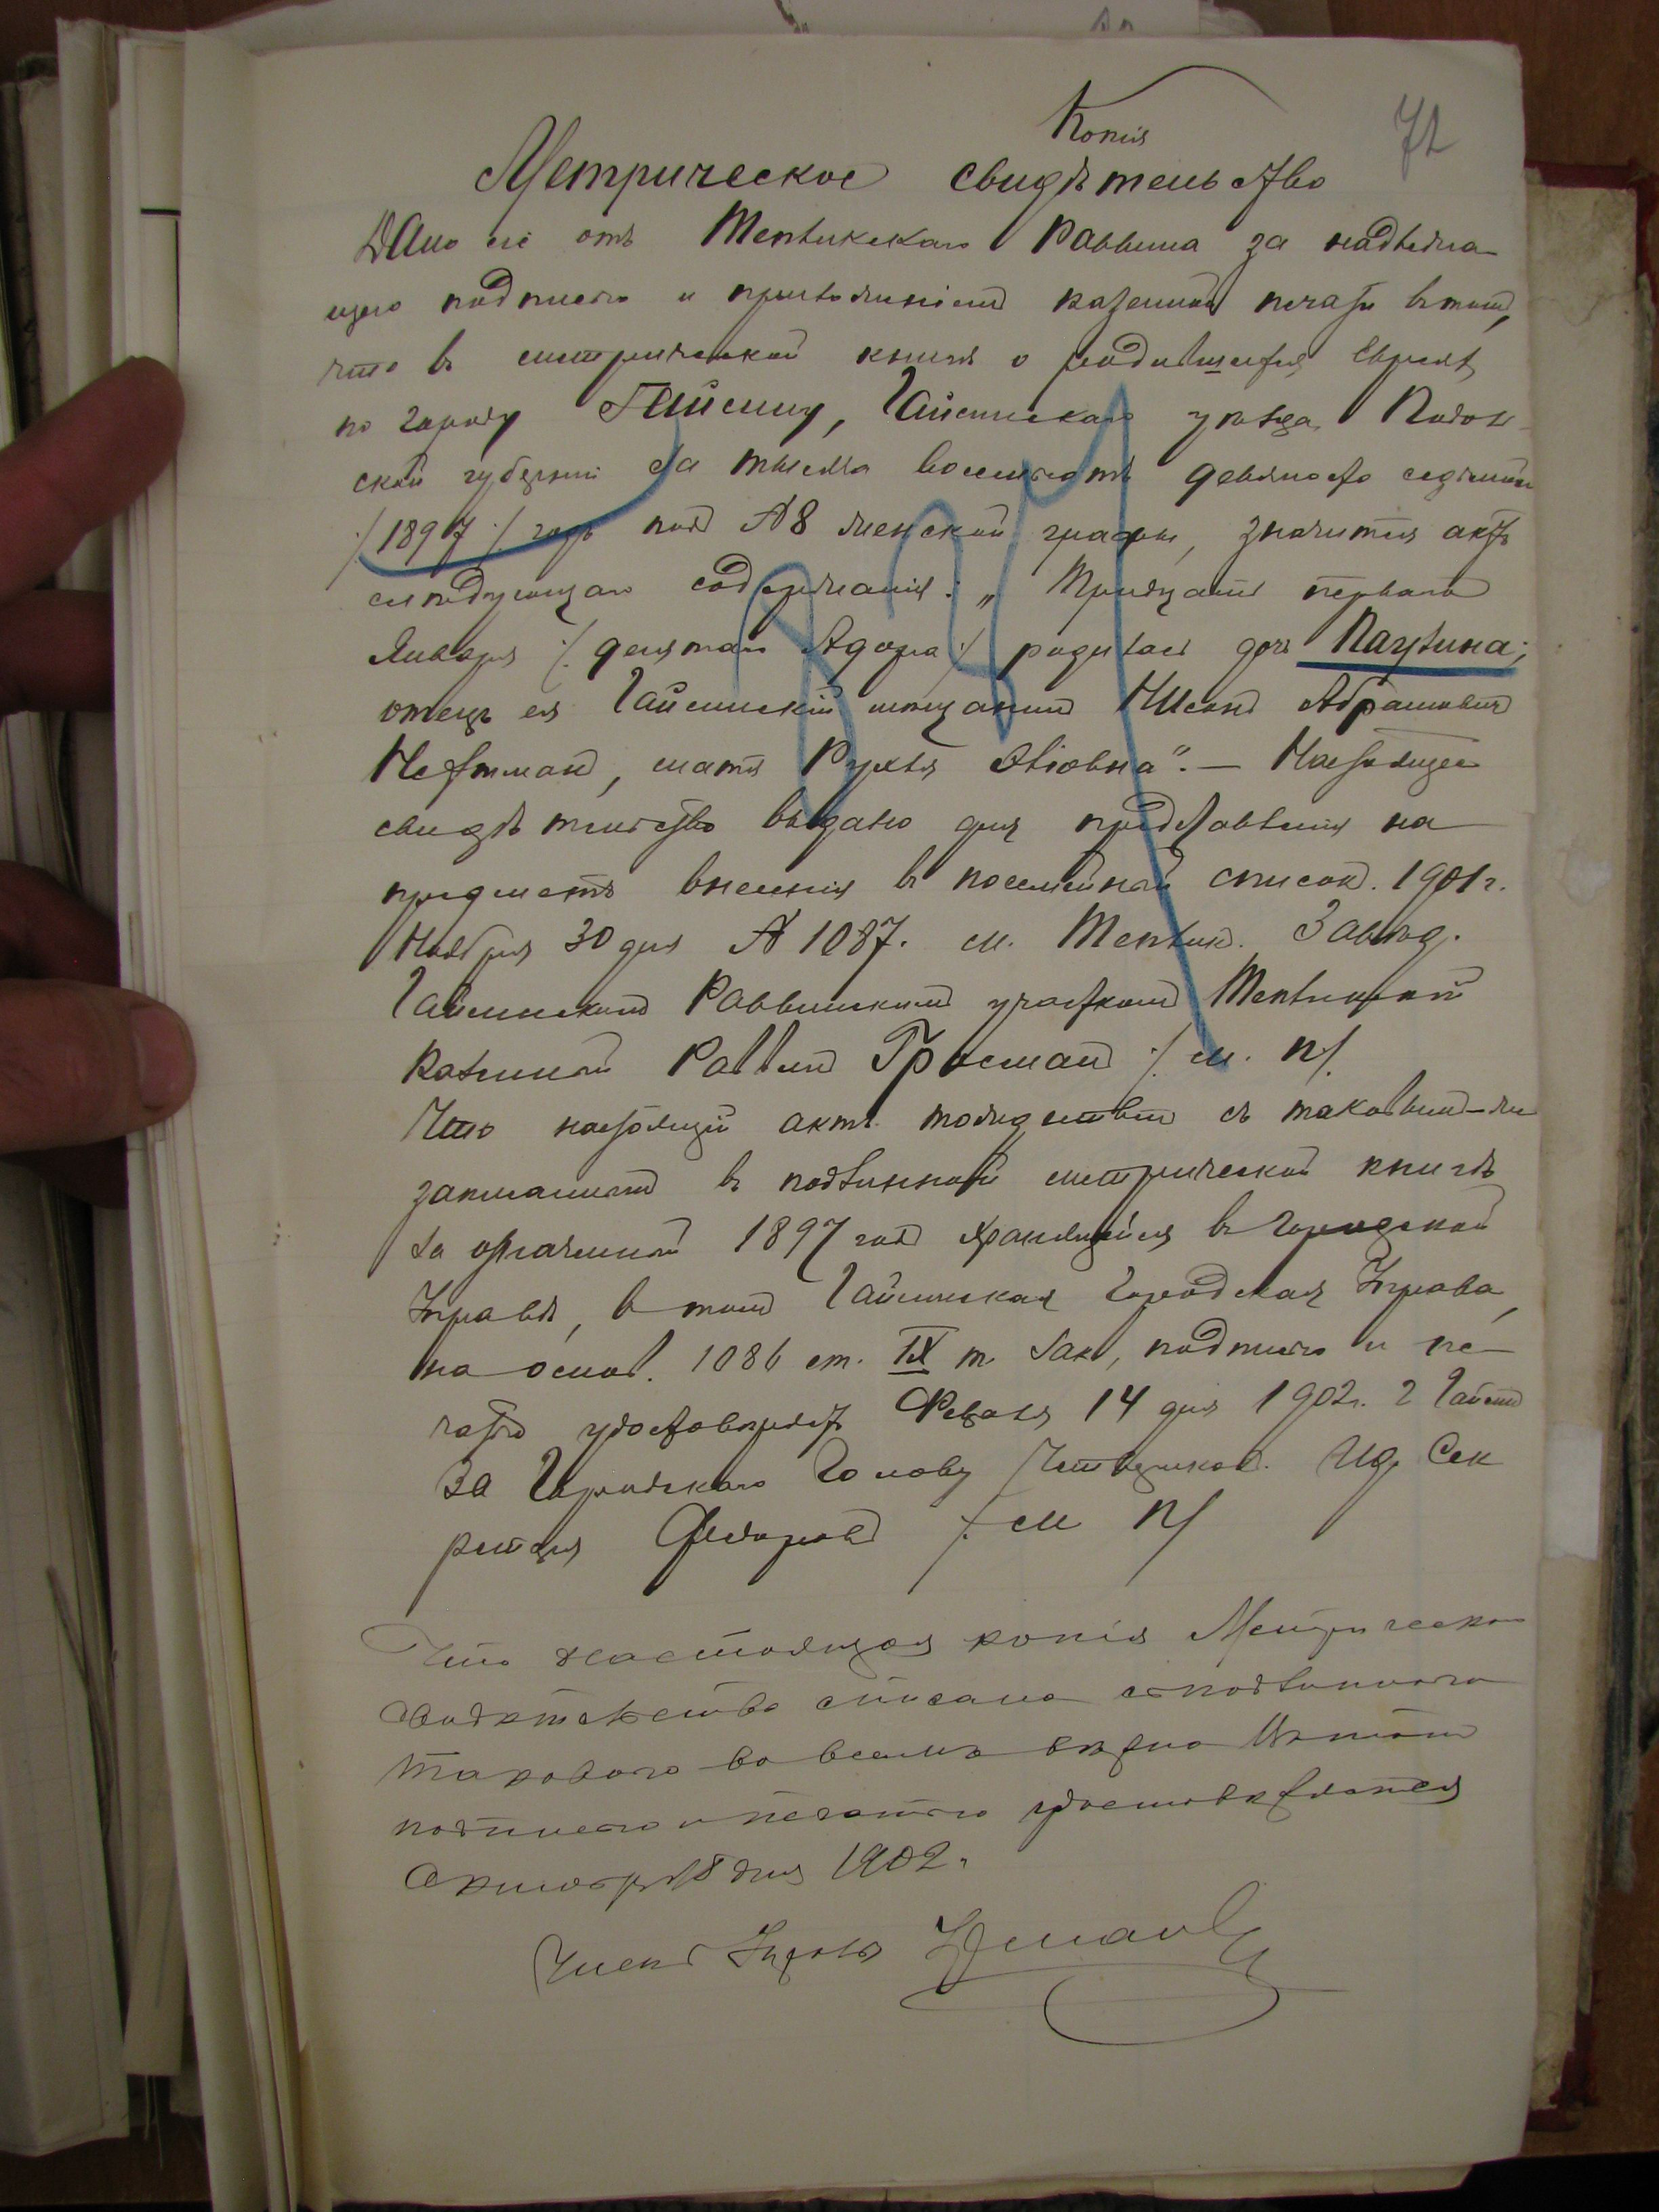 72
Копія
Метрическое свидѣтельство
Дано сіе отъ Тепликскаго Раввина за надлежа-
щею подписью и приложеніемъ казенной печати въ томъ,
что въ метрической книгѣ о родившихся Евреяхъ
по городу Гайсину, Гайсинскаго уѣзда Подоль-
ской губерніи за тысяча восемьсотъ девяносто седьмой
/1897/ годъ подъ № 8 женской графы, значится актъ
слѣдующаго содержанія: „Тридцать перваго
Января /: девятаго Адора :/ родилась дочь Паулина;
отецъ ея Гайсинскій мѣщанинъ Абрамовичъ
мать Рухля". — Настоящее
свидѣтельство выдано для представленія на
предметъ внесенія въ посемейный списокъ. 1901 г.
Ноября 30 дня № 1087. м. Тепликъ. Завѣд.
Гайсинскимъ Раввинскимъ участкомъ Тепликскій
Казенный Раввинъ Гросманъ /: м. п/.
Что настоящій актъ тождественъ съ таковымъ-же
записаннымъ въ подлинной метрической книгѣ
за означенный 1897 годъ хранящейся въ Городской
Управѣ, въ томъ Гайсинская Городская Управа,
на основ. 1086 ст. IX т. Зак., подписью и пе-
чатью удостовѣряетъ Февраля 14 дня 1902 г. г Гайсинъ
За Городского Голову Ид. Сек
ретаря Федоровъ /: м п/
Что настоящая копія Метрическаго
свидѣтельства списана съ подлиннаго
таковаго во всемъ вѣрно въ томъ
подписью и печатью удостовѣряется
Октября 18 дня 1902 г.
Членъ Управы